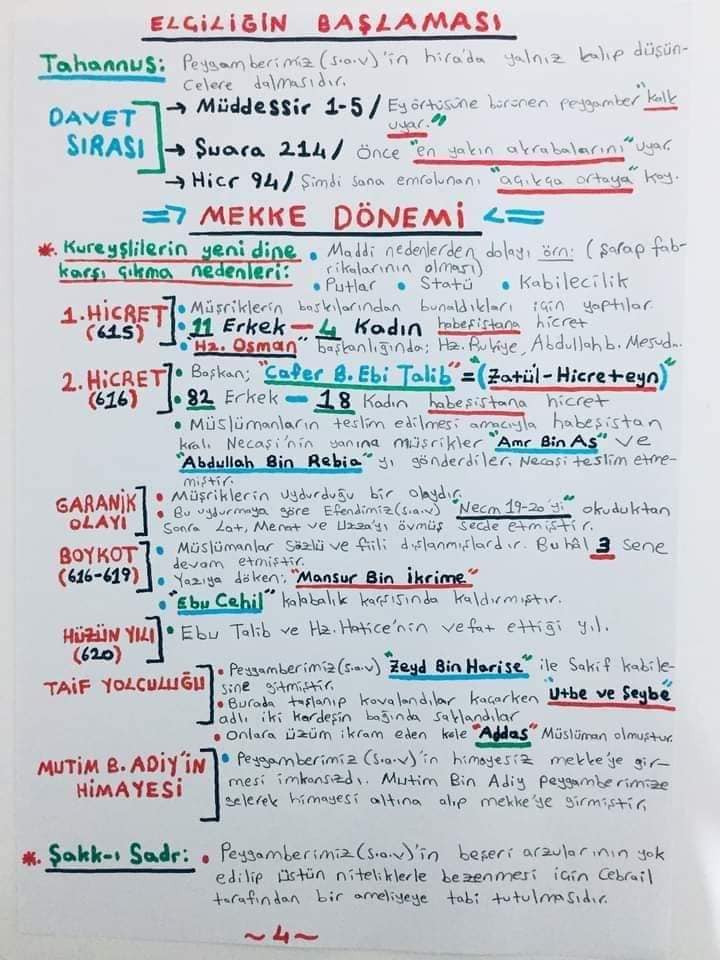 ELÇİLİĞİN BAŞLAMASI
Tahannus: Peygamberimiz(s.a.v)'in hira'da yalnız kalıp düşün-
celere dalmasıdır.
DAVET SIRASI
→ Müddessir 1-5/ Ey örtüsüne bürünen peygamber "kalk
uyar."
→ Şuara 214/ Önce "en yakın akrabalarını" uyar.
→ Hicr 94/ Şimdi sana emrolunanı "açıkça ortaya" koy.
⇒ MEKKE DÖNEMİ ⇐
*. Kureyşlilerin yeni dine
karşı çıkma nedenleri:
• Maddi nedenlerden dolayı örn: (şarap fab-
rikalarının olması)
• Putlar • Statü • Kabilecilik
1. HİCRET
(615)
• Müşriklerin baskılarından bunaldıkları için yaptılar.
• 11 Erkek — 4 Kadın habeşistana hicret
• Hz. Osman" başkanlığında; Hz. Rukiye, Abdullah b. Mesud..
2. HİCRET
(616)
• Başkan; "Cafer B. Ebi Talib" = (Zatül-Hicreteyn)
• 82 Erkek — 18 Kadın habeşistana hicret
• Müslümanların teslim edilmesi amacıyla habeşistan
kralı Necaşi'nin yanına müşrikler "Amr Bin As" ve
"Abdullah Bin Rebia"yı gönderdiler. Necaşi teslim etme-
miştir.
GARANİK
OLAYI
• Müşriklerin uydurduğu bir olaydır.
• Bu uydurmaya göre Efendimiz(s.a.v) "Necm 19-20'yi" okuduktan
sonra Lat, Menat ve Uzza'yı övmüş secde etmiştir.
BOYKOT
(616-619)
• Müslümanlar sözlü ve fiili dışlanmışlardır. Bu hâl 3 sene
devam etmiştir.
• Yazıya döken; "Mansur Bin İkrime"
• "Ebu Cehil" kalabalık karşısında kaldırmıştır.
HÜZÜN YILI
(620)
• Ebu Talib ve Hz. Hatice'nin vefat ettiği yıl.
TAİF YOLCULUĞU
• Peygamberimiz(s.a.v) "Zeyd Bin Harise" ile Sakif kabile-
sine gitmiştir.
• Burada taşlanıp kovalandılar kaçarken "Utbe ve Şeybe"
adlı iki kardeşin bağında saklandılar
• Onlara üzüm ikram eden köle "Addas" Müslüman olmuştur.
MUTİM B. ADİY'İN
HİMAYESİ
• Peygamberimiz(s.a.v)'in himayesiz mekke'ye gir-
mesi imkansızdı. Mutim Bin Adiy peygamberimize
gelerek himayesi altına alıp mekke'ye girmiştir.
*. Şakk-ı Sadr: • Peygamberimiz(s.a.v)'in beşeri arzularının yok
edilip üstün niteliklerle bezenmesi için Cebrail
tarafından bir ameliyeye tabi tutulmasıdır.
~4~